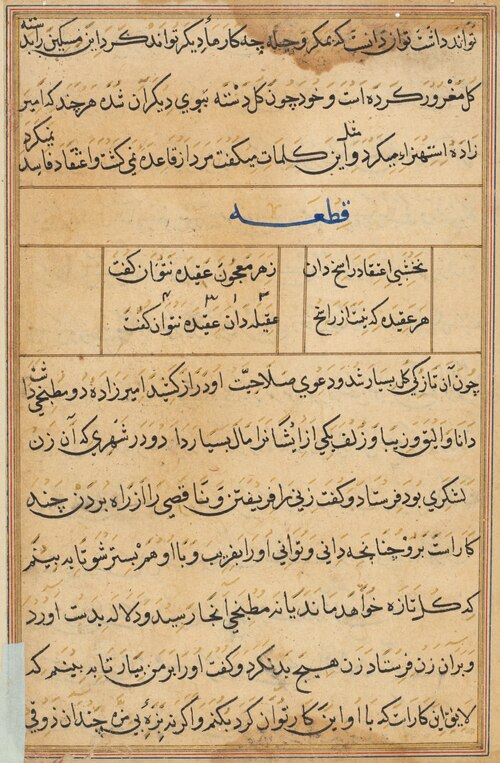 تواند داشت تواز زدانست که بمکر و حیله چه کار ما دیگر تواند کرد این مسکین را بدسته
کل مغرور کرده است و خود چون کل دسته ببوی دیگران شده هر چند که امیر
زاده استهزاء میکرد و مثل این کلمات میگفت مرد از قاعده نمی کشت و اعتقاد فاسد نمیکرد
قطعه
نخشبی اعتقاد راسخ دان زهر معجون عقیده نتوان گفت
هر عقیده که نیست از راسخ عقیله دان عقیده نتوان گفت
چون آن تازگی کل بسیار شد و دعوی صلاحیت او دراز کشید امیرزاده دو مطبخی داشت
دانا و لایق و زیبا و زلف یکی از ایشانرا مال بسیار داد و در شهری که آن زن
لشکری بود فرستاد و گفت زنی را فریفتن و ناقصی را از راه بردن چند
کار است برو چنانچه دانی و توانی او را بفریب و با او همبستر شو تا به بینم
که کل تازه خواهد ماند یا نه مطبخی آنجا رسید و دلاله بدست اورد
و بران زن فرستاد زن هیچ بد نکرد و گفت او را بر من بیار تا به بینم که
لایق این کار است که با او این کار توان کرد یکنم و اگر نه بزه بی مزه چندان ذوقی